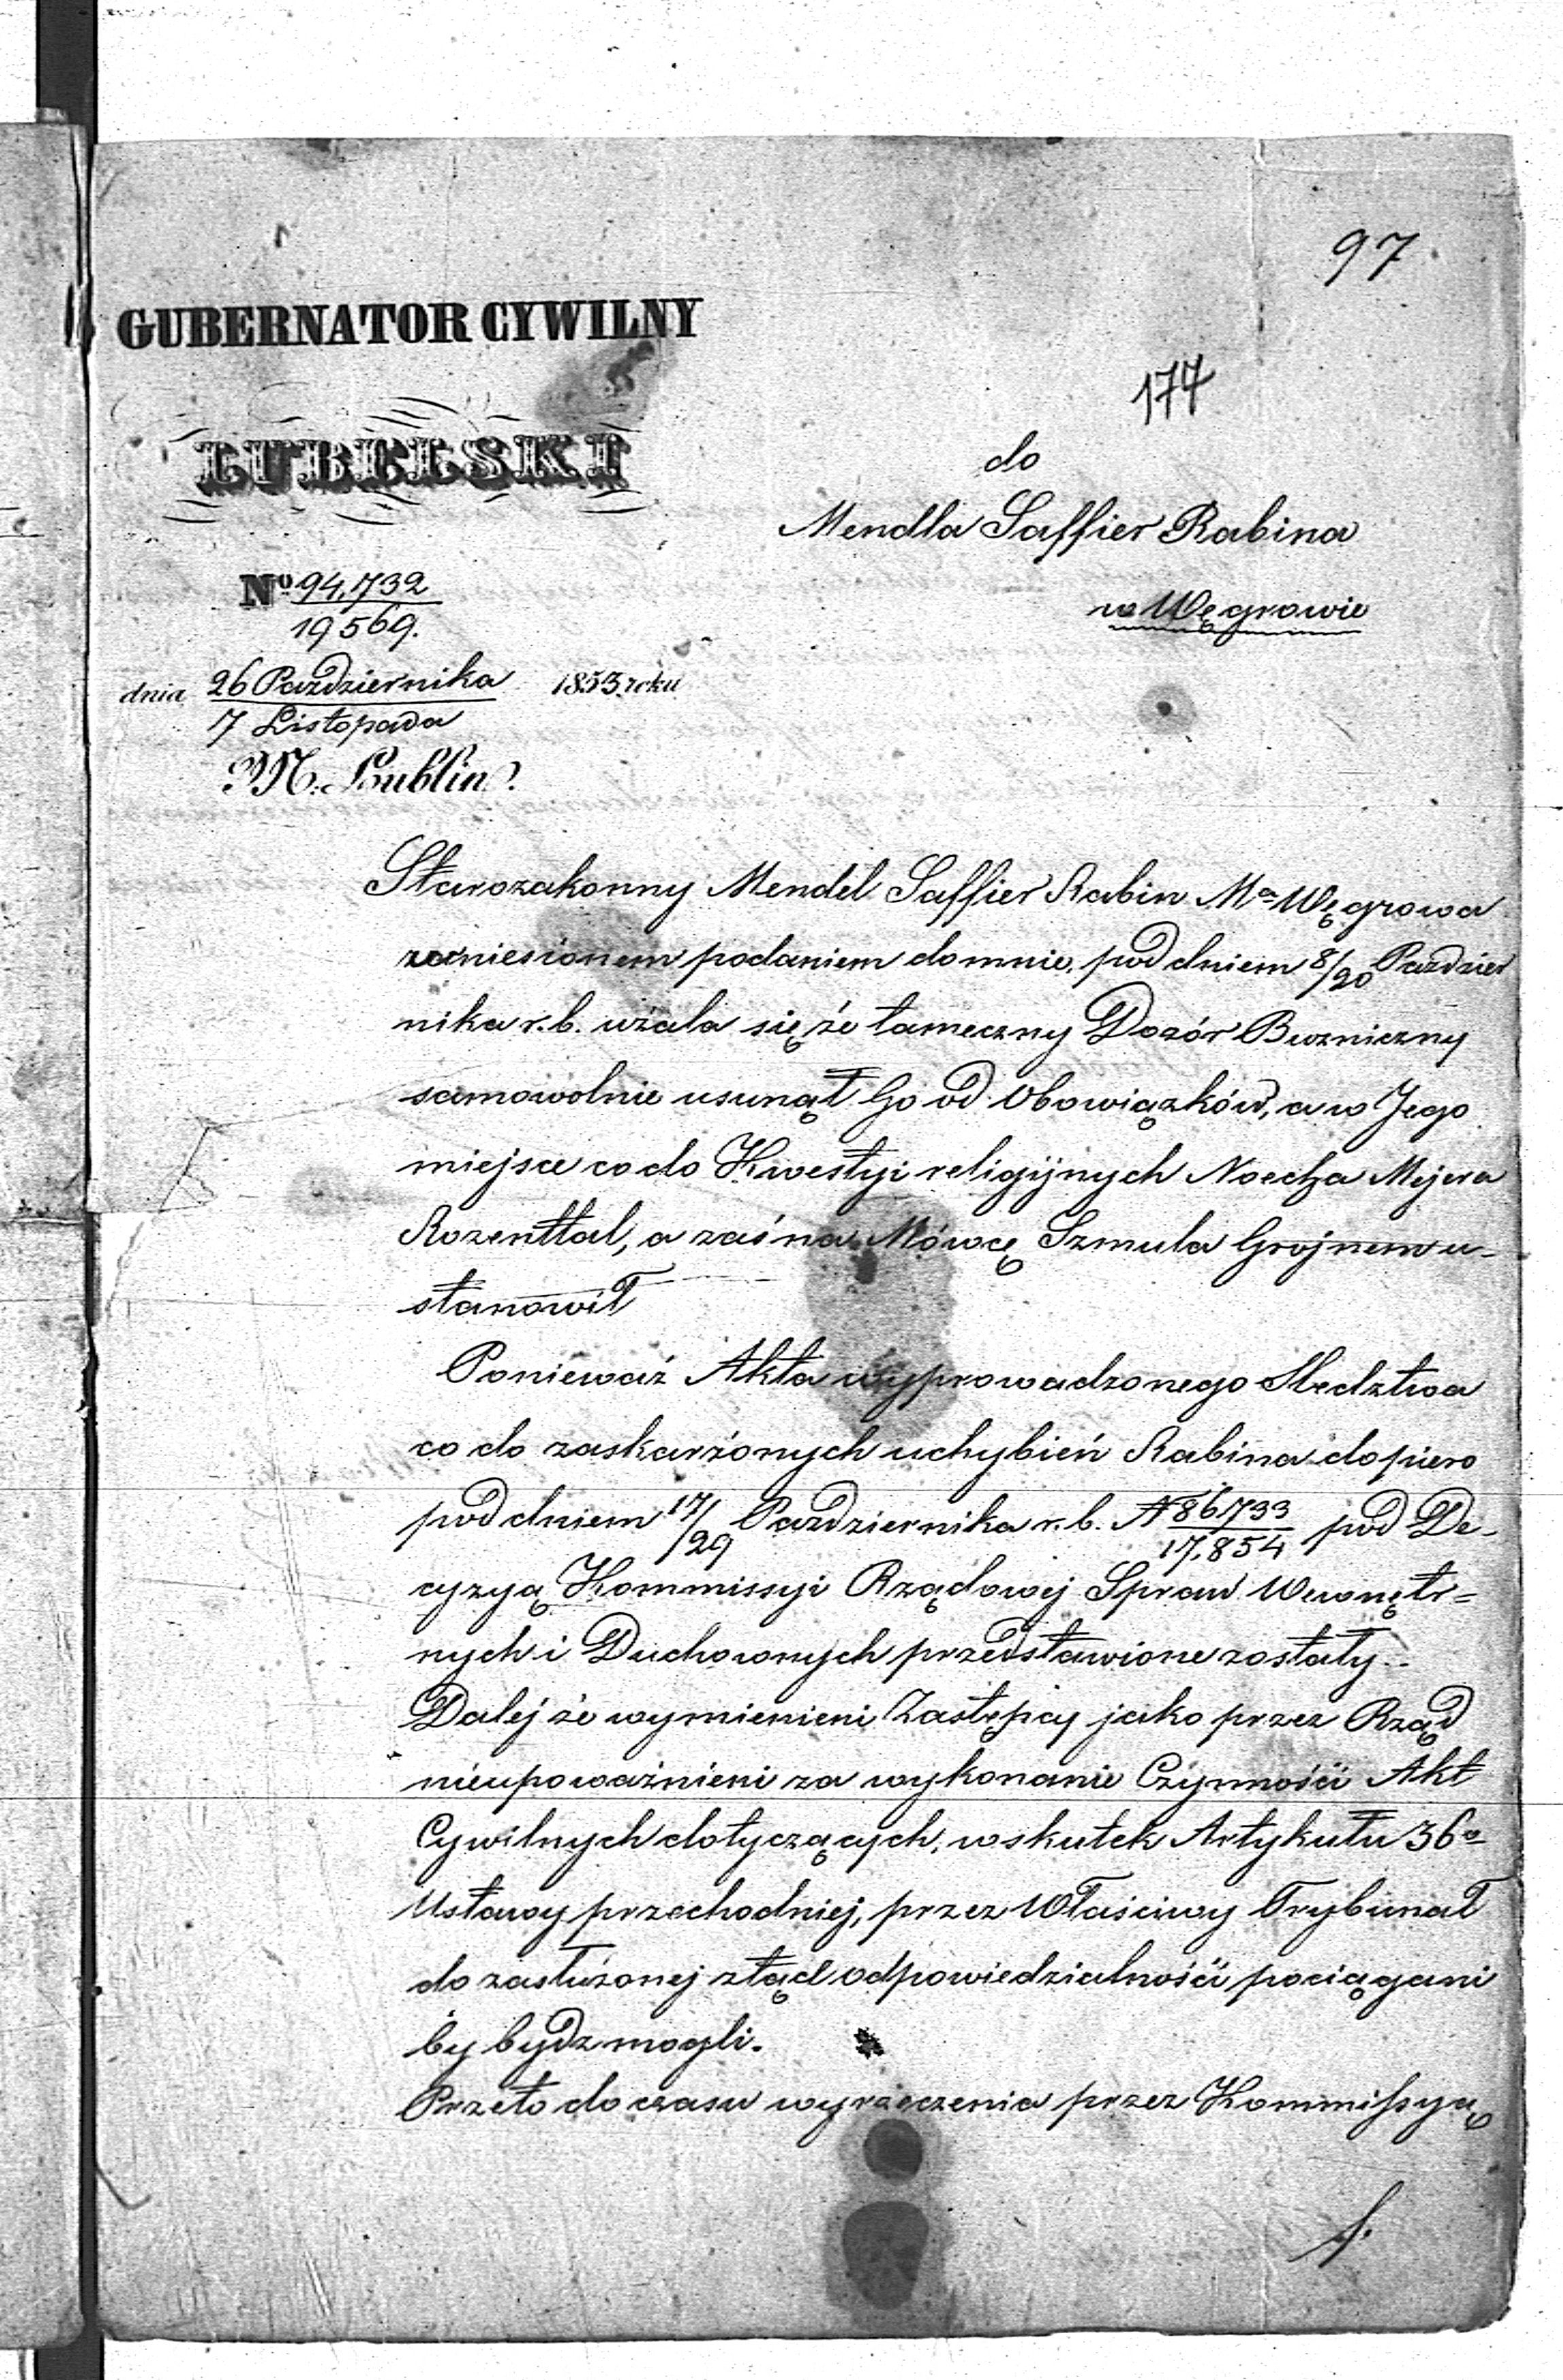 97
GUBERNATOR CYWILNY
LUBELSKI
177
do
Mendla Saffier Rabina
w Węgrowie
Nº 94,732
19569.
dnia 26 Października 1853. roku
7 Listopada
M. Lublin.
Starozakonny Mendel Saffier Rabin Mª Węgrowa
zaniesionem podaniem do mnie, pod dniem 8/20 Paździer
nika r.b. użala się że tameczny Dozór Bużniczny
samowolnie usunął Go od Obowiązków, a w Jego
miejsce co do Kwestyi religijnych Noecha Mejera
Rozenttal, a zaś na Mówcę Szmula Grojnem u-
stanowił
Ponieważ Akta wyprowadzonego Sledztwa
co do zaskarżonych uchybień Rabina dopiero
pod dniem 17/29 Października r.b. N 86733/17,854 pod De-
cyzyą Kommissyi Rządowej Spraw Wewnętr=
nych i Duchownych przedstawione zostały.
Dalej że wymienieni Zastępcy jako przez Rząd
nieupoważnieni za wykonanie Czynności Akt
Cywilnych dotyczących, wskutek Artykułu 36º
Ustawy przechodniej, przez Właściwy Trybunał
do zasłużonej ztąd odpowiedzialności pociągani
by bydz mogli.
Przeto do czasu wyrzeczenia przez Kommissyą